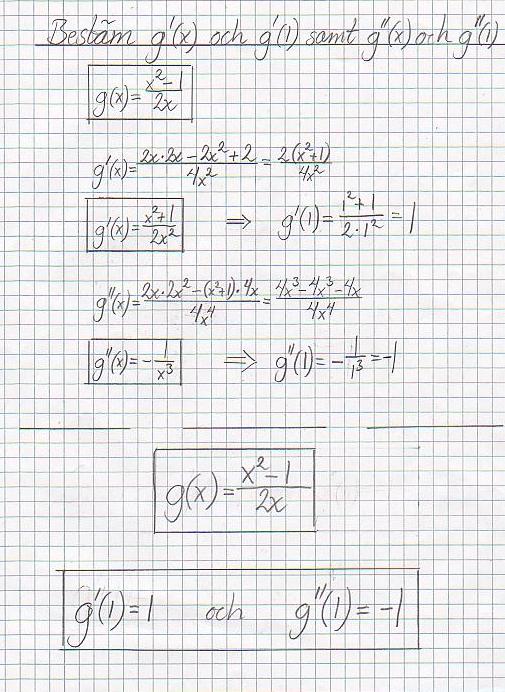 Bestäm g'(x) och g'(1) samt g''(x) och g''(1)
g(x) = (x² - 1)/(2x)
g'(x) = (2x·2x - 2x² + 2)/(4x²) = (2(x² + 1))/(4x²)
g'(x) = (x² + 1)/(2x²) ⇒ g'(1) = (1² + 1)/(2·1²) = 1
g''(x) = (2x·2x² - (x² + 1)·4x)/(4x⁴) = (4x³ - 4x³ - 4x)/(4x⁴)
g''(x) = -1/x³ ⇒ g''(1) = -1/1³ = -1
g(x) = (x² - 1)/(2x)
g'(1) = 1 och g''(1) = -1